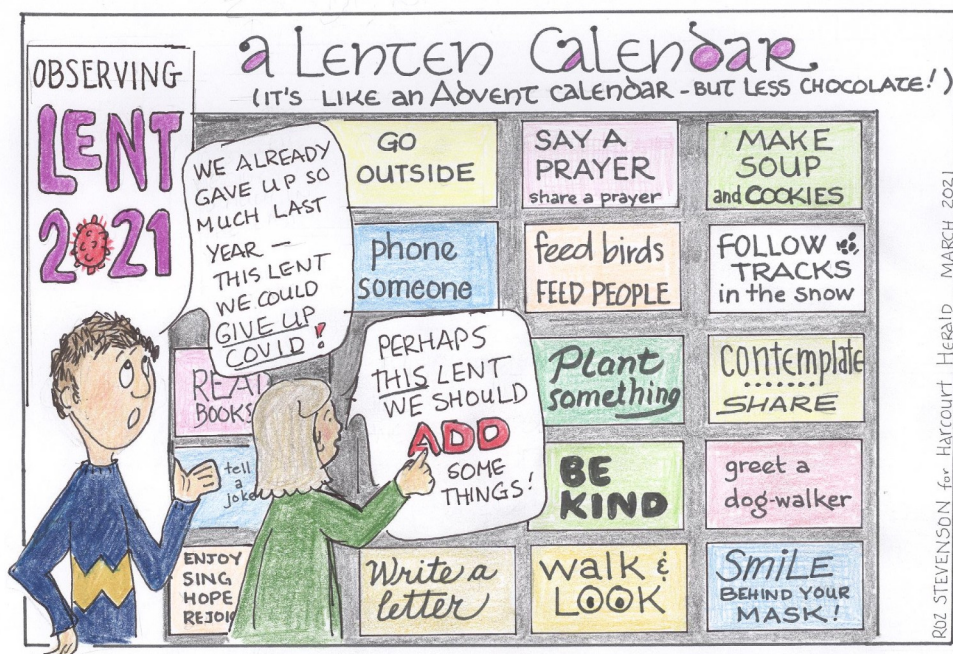 OBSERVING
LENT
2021
a LENTEN CALENDAR
(IT'S LIKE an ADVENT CALENDAR - BUT LESS CHOCOLATE!)
WE ALREADY
GAVE UP SO
MUCH LAST
YEAR —
THIS LENT
WE COULD
GIVE UP
COVID!
PERHAPS
THIS LENT
WE SHOULD
ADD
SOME
THINGS!
GO
OUTSIDE
SAY A
PRAYER
share a prayer
MAKE
SOUP
and COOKIES
phone
someone
feed birds
FEED PEOPLE
FOLLOW
TRACKS
in the snow
READ
BOOKS
Plant
something
contemplate
SHARE
tell
a
joke
BE
KIND
greet a
dog-walker
ENJOY
SING
HOPE
REJOIC
Write a
letter
walk &
LOOK
SMILE
BEHIND YOUR
MASK!
ROZ STEVENSON for HARCOURT HERALD MARCH 2021